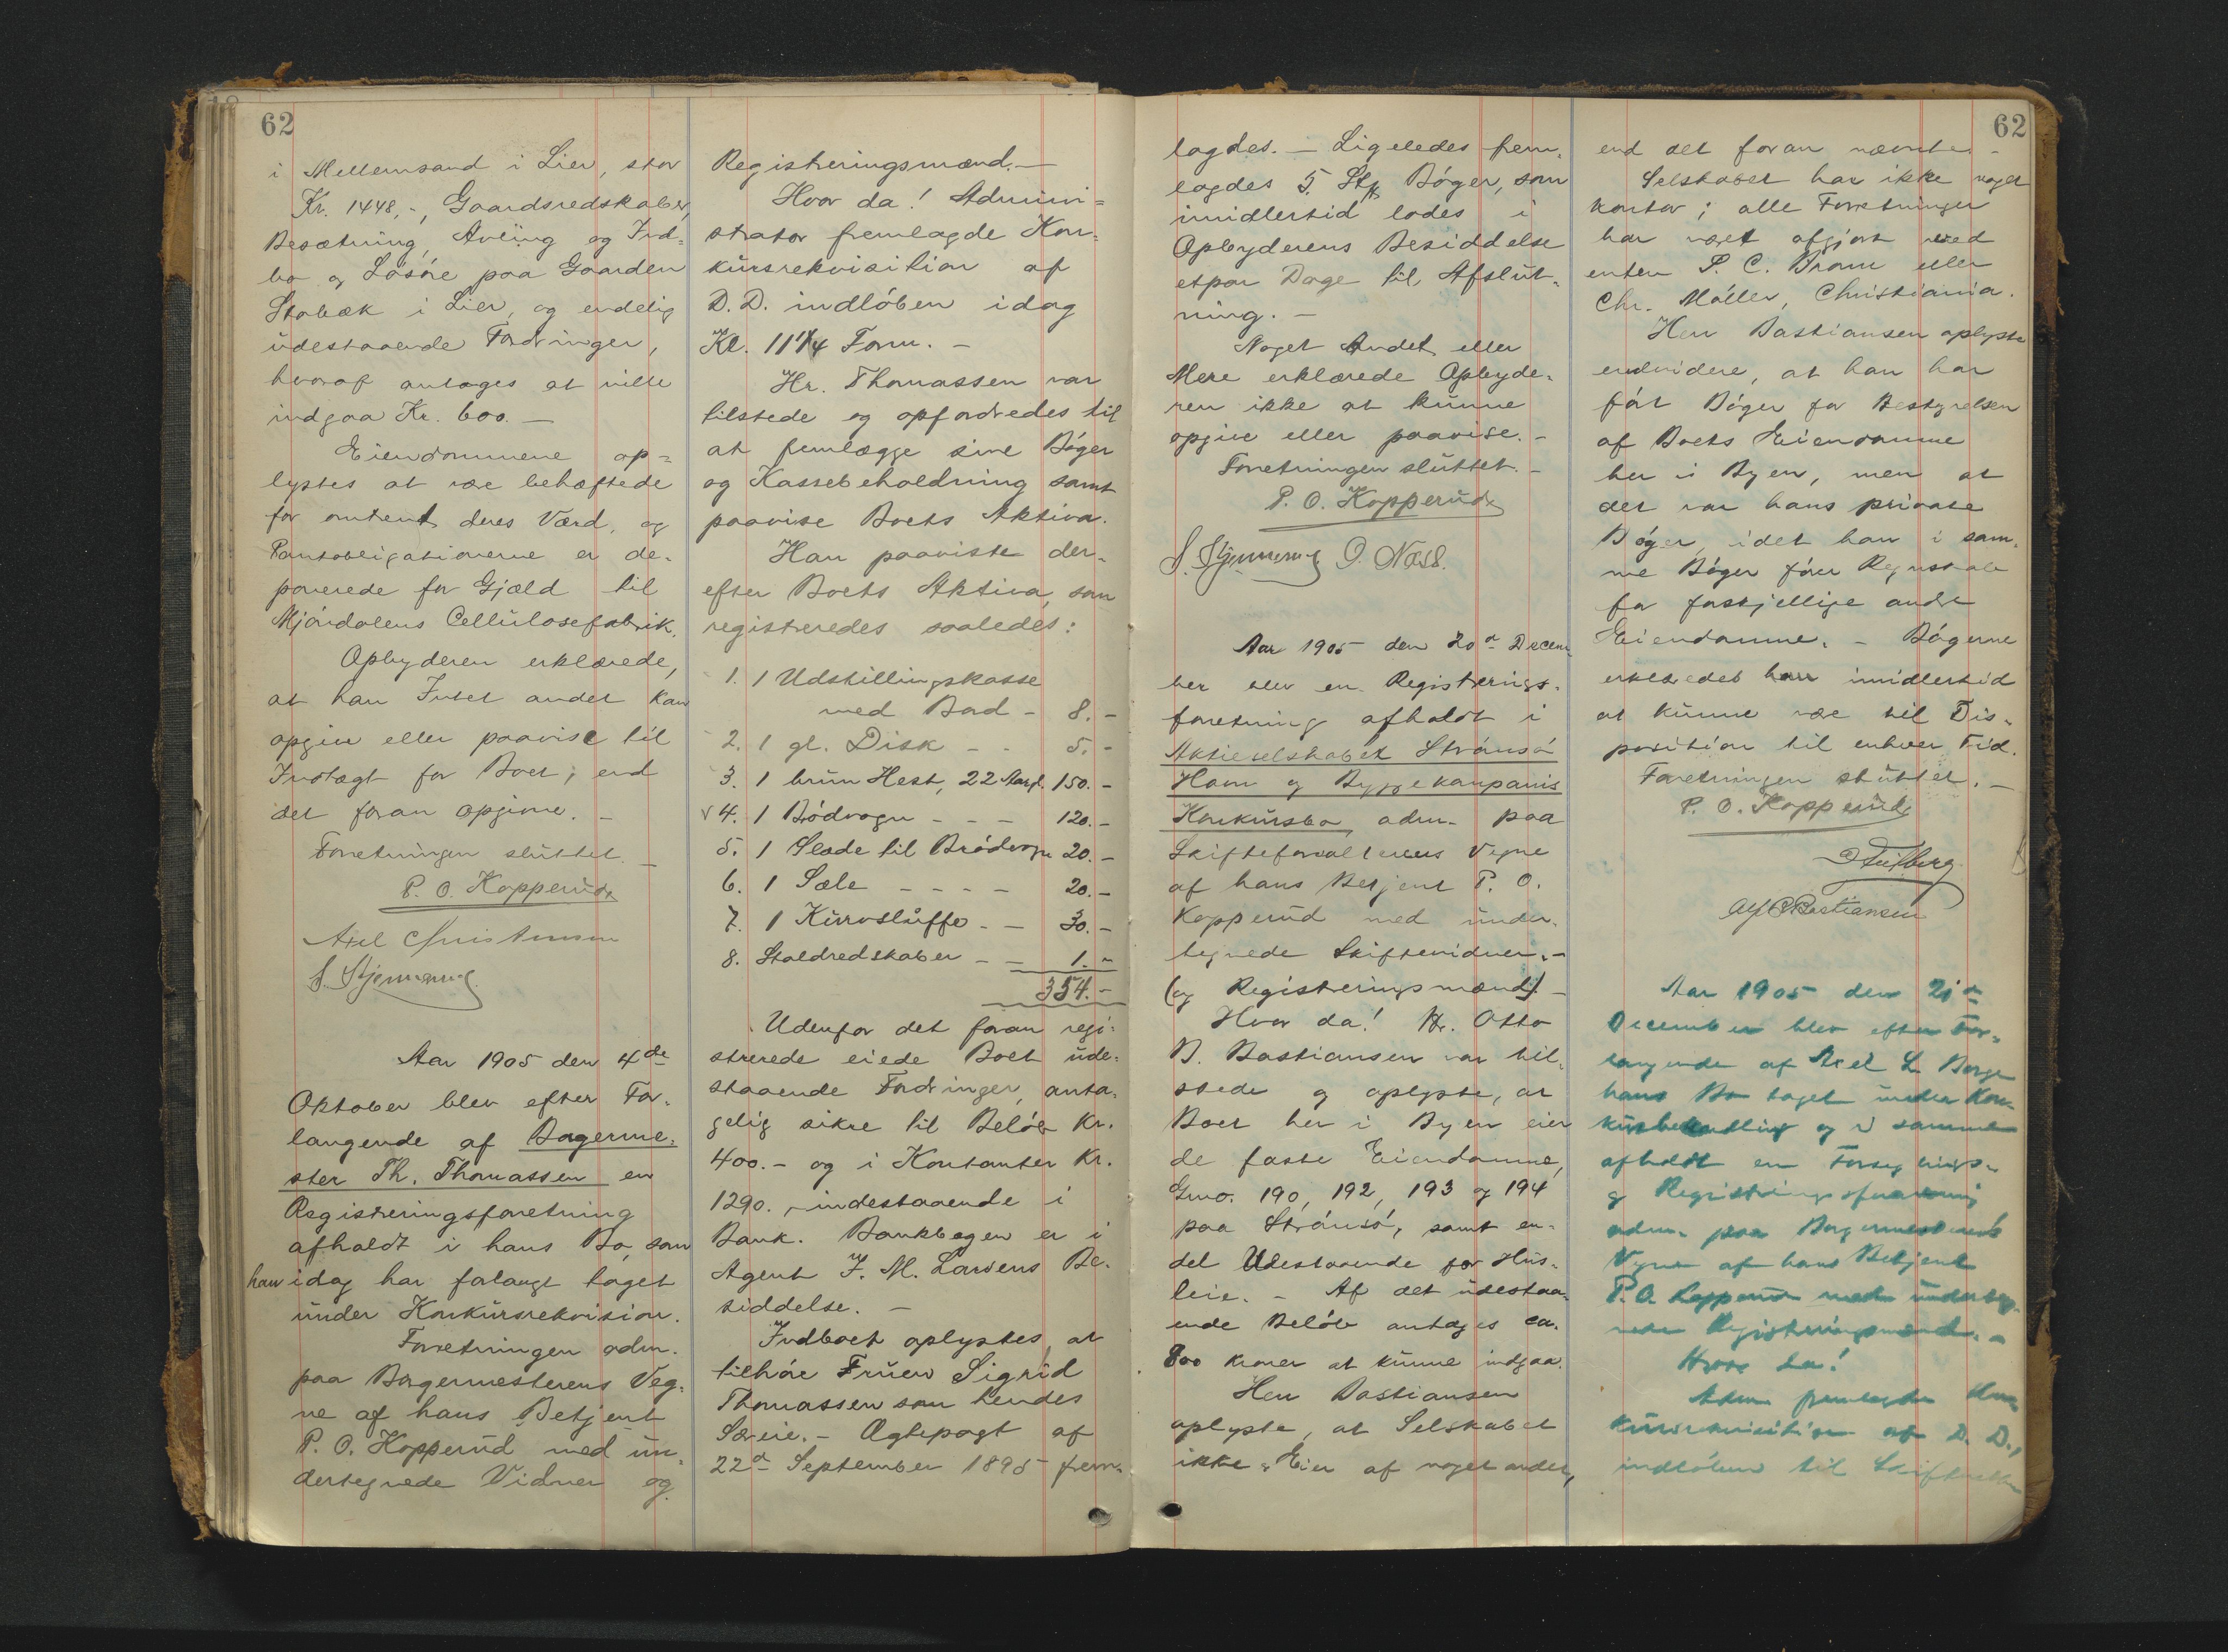 62
i Mellemsand i Lier, stor
Kr. 1448,-, Gaardsredskaber,
Besætning, Avling og Ind-
bo og Løsøre paa Gaarden
Stabæk i Lier, og endelig
udestaaende Fordringer,
hvoraf antages at ville
indgaa Kr. 600.-
Eiendommene op-
lystes at være behæftede
for omtrent deres Værd, og
Pantobligationerne er de-
ponerede for Gjæld til
Mjøndalens Cellulosefabrik.
Opbyderen erklærede,
at han Intet andet kan
opgive eller paavise til
Indtægt for Boet, end
det foran opgivne. -
Forretningen sluttet. -
P. O. Kopperud
Axel Christensen
Aar 1905 den 4de
Oktober blev efter For-
langende af Bagerme-
ster Th. Thomassen en
Registreringsforretning
afholdt i hans Bo, som
han idag har forlangt taget
under Konkursrekvisition.
Forretningen adm.
paa Borgermesterens Veg-
ne af hans Betjent
P. O. Kopperud med un-
dertegnede Vidner og
Registreringsmænd.-
Hvor da! Admini-
strator fremlagde Kon-
kursrekvisition af
D. D. indløben idag
Kl. 11 1/4 Form. -
Hr. Thomassen var
tilstede og opfordredes til
at fremlægge sine Bøger
og Kassebeholdning samt
paavise Boets Aktiva.
Han paaviste der-
efter Boets Aktiva, som
registreredes saaledes:
1. 1 Udstillingskasse
med Bord - 8.-
2. 1 gl. Disk - - 5.-
3. 1 brun Hest, 22 Aar gl. 150.-
√ 4. 1 Brødvogn - - - 120.-
5. 1 Slæde til Brødvogn 20.-
6. 1 Sæle - - - - 20.-
7. 1 Kurvsluffe - - 30.-
8. Staldredskaber - - 1.-
354.-
Udenfor det foran regi-
strerede eiede Boet ude-
staaende Fordringer, anta-
gelig sikre til Beløb Kr.
400.- og i Kontanter Kr.
1290.-, indestaaende i
Bank. Bankbogen er i
Agent J. M. Larsens Be-
siddelse. -
Indboet oplystes at
tilhøre Fruen Sigrid
Thomassen som hendes
Særeie.- Ægtepagt af
22d September 1895 frem-
62
lagdes. - Ligeledes frem-
lagdes 5 Stk Bøger, som
imidlertid lodes i
Opbyderens Besiddelse
etpar Dage til Afslut-
ning. -
Noget Andet eller
Mere erklærede Opbyde-
ren ikke at kunne
opgive eller paavise. -
Forretningen sluttet. -
P. O. Kopperud
O. Næss.
Aar 1905 den 20d Decem-
ber blev en Registrerings-
forretning afholdt i
Aktieselskabet Strømsø
Havn og Byggekompanis
Konkursbo, adm. paa
Skifteforvalterens Vegne
af hans Betjent P. O.
Kopperud med under-
tegnede Skiftevidner.-
(og Registreringsmænd). -
Hvor da! Hr. Otto
B. Bastiansen var til-
stede og oplyste, at
Boet her i Byen eier
de faste Eiendomme,
Gno. 190, 192, 193 og 194
paa Strømsø, samt en-
del Udestaaende for Hus-
leie. - Af det udestaa-
ende Beløb antages ca.
800 kroner at kunne indgaa.
Herr Bastiansen
oplyste, at Selskabet
ikke Eier af noget andet,
end det foran nævnte. -
Selskabet har ikke noget
kontor; alle Forretninger
har været afgjort ved
enten P. C. Bronn eller
Chr. Møller, Christiania.
Herr Bastiansen oplyste
endvidere, at han har
ført Bøger for Bestyrelsen
af Boets Eiendomme
her i Byen, men at
det var hans private
Bøger, idet han i sam-
me Bøger fører Regnskab
for forskjellige andre
Eiendomme. - Bøgerne
erklæredes han imidlertid
at kunne være til Dis-
position til enhver Tid.
Forretningen sluttet. -
P. O. Kopperud
Bastiansen
Aar 1905 den 21de
December blev efter For-
langende af Axel L. Borge
hans Bo taget under Kon-
kursbehandling og i samme
afholdt en Forseglings-
og Registreringsforretning
adm. paa Borgermesterens
Vegne af hans Betjent
P. O. Kopperud med underteg-
nede Registreringsmænd. -
Hvor da!
Adm. fremlagde Kon-
kursrekvisition af D. D.,
indløben til Skifteretten